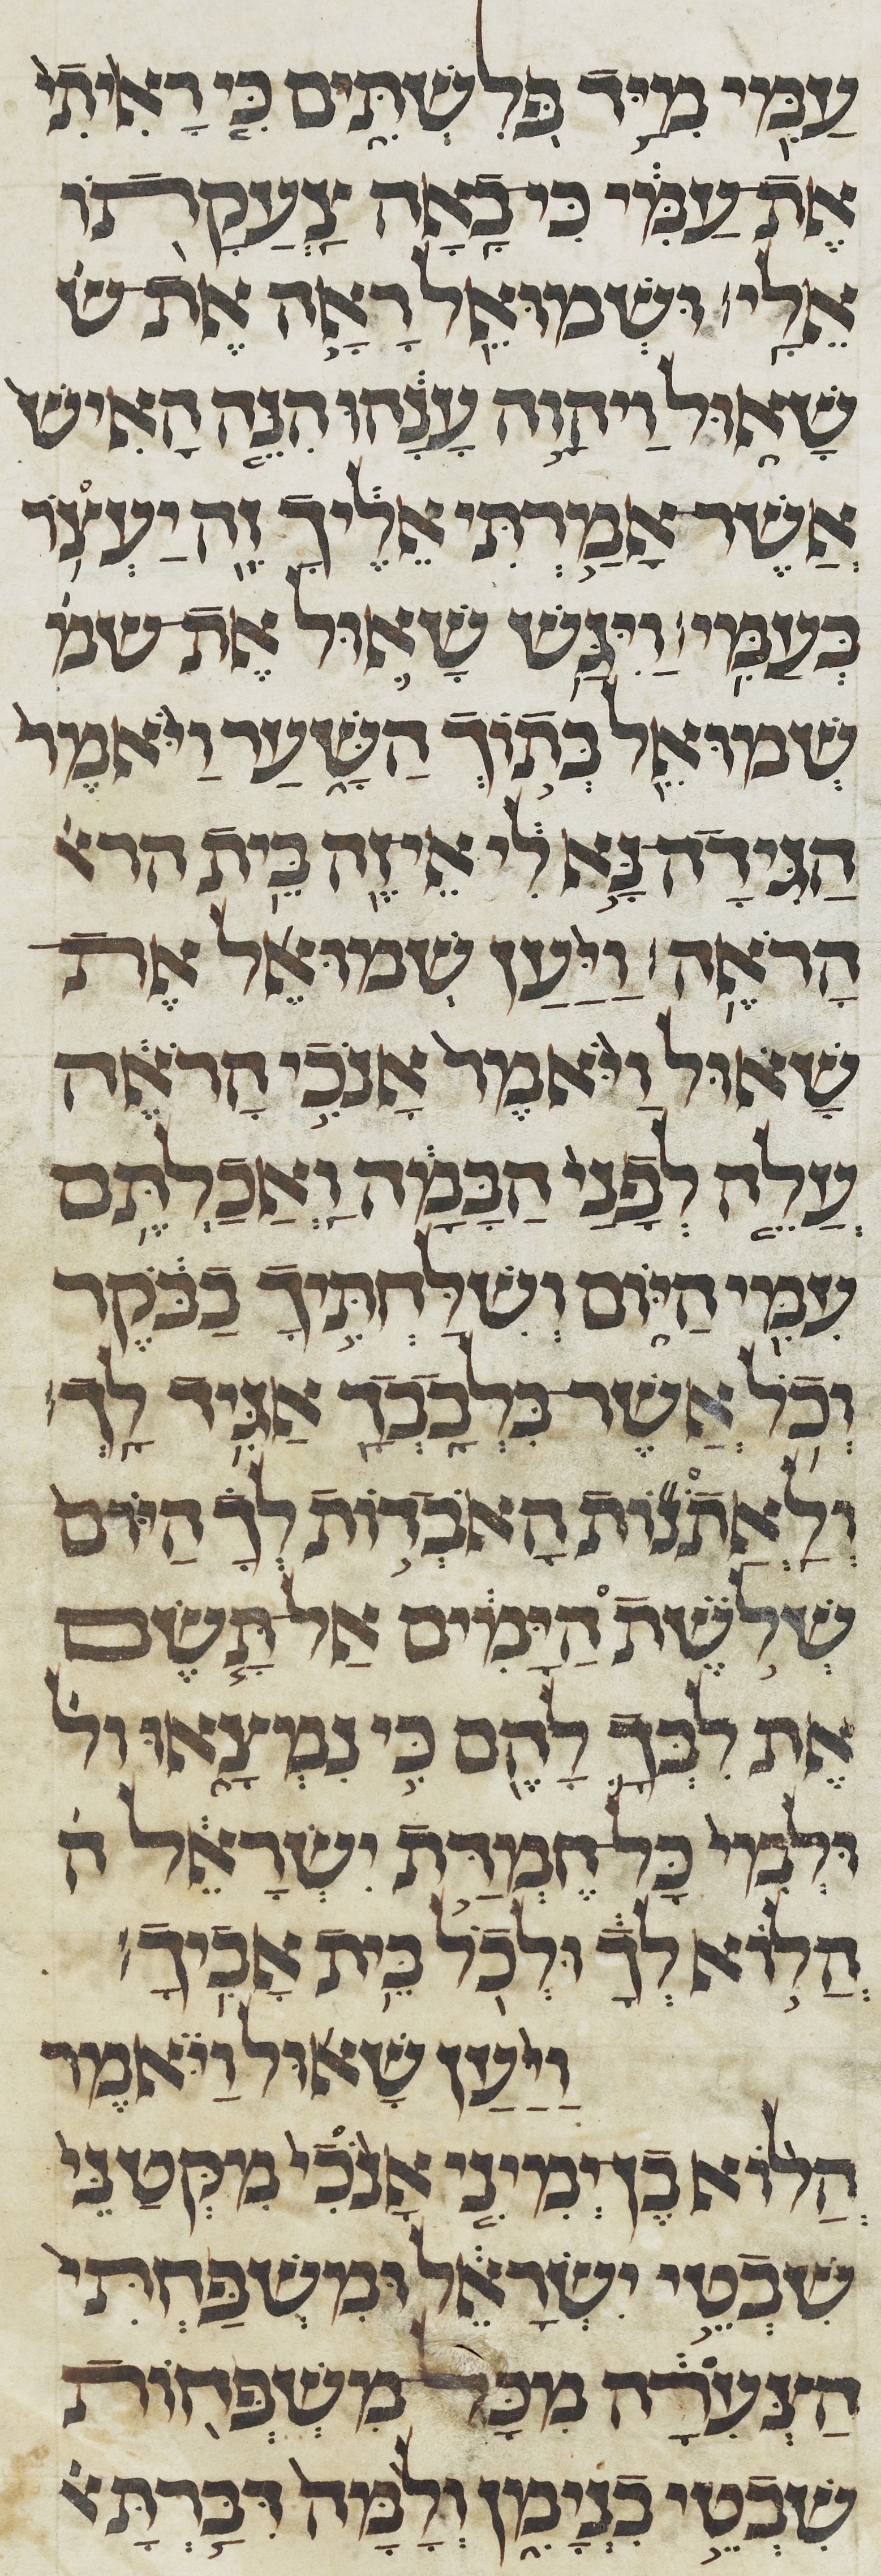 עַמִּי֙ מִיַּ֣ד פְּלִשְׁתִּ֔ים כִּ֤י רָאִ֙יתִי֙
אֶת־עַמִּ֔י כִּי־בָּ֥אָה צַעֲקָת֖וֹ
אֵלָֽי׃ וּשְׁמוּאֵ֖ל רָאָ֣ה אֶת־ש
שָׁא֑וּל וַיהוָ֣ה עָנָ֔הוּ הִנֵּ֤ה הָאִישׁ֙
אֲשֶׁר־אָמַ֣רְתִּי אֵלֶ֔יךָ זֶ֖ה יַעְצֹ֥ר
בְּעַמִּֽי׃ וַיִּגַּ֥שׁ שָׁא֛וּל אֶת־שמ
שְׁמוּאֵ֖ל בְּת֣וֹךְ הַשָּׁ֑עַר וַיֹּ֙אמֶר֙
הַגִּֽידָה־נָּ֣א לִ֔י אֵי־זֶ֖ה בֵּ֥ית הרא
הָרֹאֶֽה׃ וַיַּ֨עַן שְׁמוּאֵ֜ל אֶת־
שָׁא֗וּל וַיֹּ֙אמֶר֙ אָנֹכִ֣י הָרֹאֶ֔ה
עֲלֵ֤ה לְפָנַי֙ הַבָּמָ֔ה וַאֲכַלְתֶּ֥ם
עִמִּ֖י הַיּ֑וֹם וְשִׁלַּחְתִּ֣יךָ בַבֹּ֔קֶר
וְכֹ֛ל אֲשֶׁ֥ר בִּֽלְבָבְךָ֖ אַגִּ֥יד לָֽךְ׃
וְלָאֲתֹנ֞וֹת הָאֹבְד֣וֹת לְךָ֗ הַיּוֹם֙
שְׁלֹ֣שֶׁת הַיָּמִ֔ים אַל־תָּ֧שֶׂם
אֶֽת־לִבְּךָ֛ לָהֶ֖ם כִּ֣י נִמְצָ֑אוּ ול
וּלְמִי֙ כָּל־חֶמְדַּ֣ת יִשְׂרָאֵ֔ל ה
הֲל֣וֹא לְךָ֔ וּלְכֹ֖ל בֵּ֥ית אָבִֽיךָ׃
וַיַּ֨עַן שָׁא֜וּל וַיֹּ֗אמֶר
הֲל֨וֹא בֶן־יְמִינִ֤י אָנֹ֙כִי֙ מִקְּטַנֵּי֙
שִׁבְטֵ֣י יִשְׂרָאֵ֔ל וּמִשְׁפַּחְתִּי֙
הַצְּעִרָ֔ה מִכָּֽל־מִשְׁפְּח֖וֹת
שִׁבְטֵ֣י בִנְיָמִ֑ן וְלָ֙מָּה֙ דִּבַּ֣רְתָּ א